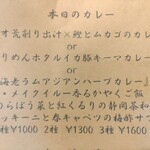 本日のカレー
オ荒削り出汁×鰹とムカゴのカレ
or
りめんホタルイカ豚キーマカレー
or
海老ラムアジアンハーブカレー』
・メイクイル～香るかやくご飯
のらぼう菜と紅くるりの静岡茶和
ッキーニと春キャベツの梅酢オサ
種¥1000 2種¥1300 3種¥1600